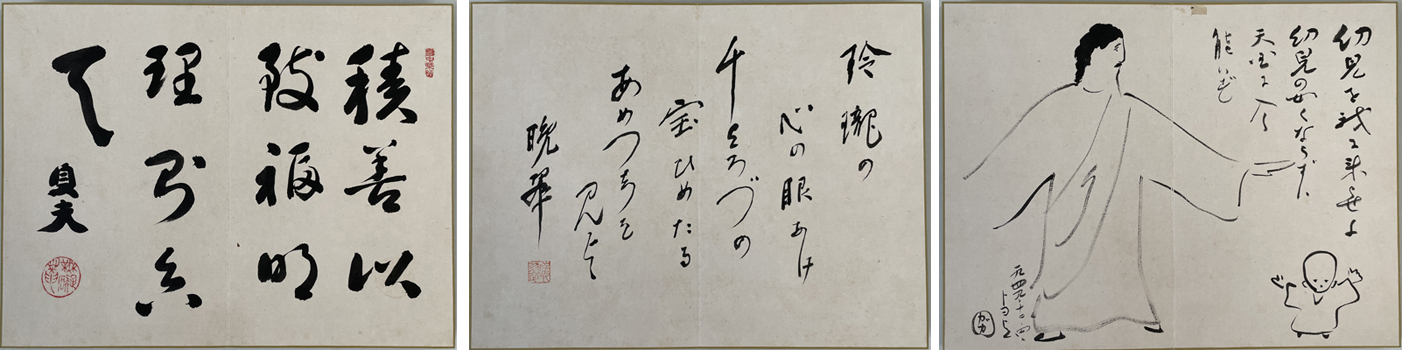 積善以
致福明
理
貞夫
玲瓏の
心の眼あけ
千よろづの
宝ひめたる
あめつちを
見よと
晩翠
幼児を我に来せよ
幼児の如くならずバ
天国に入
能ハず
一九四九、十二、四、